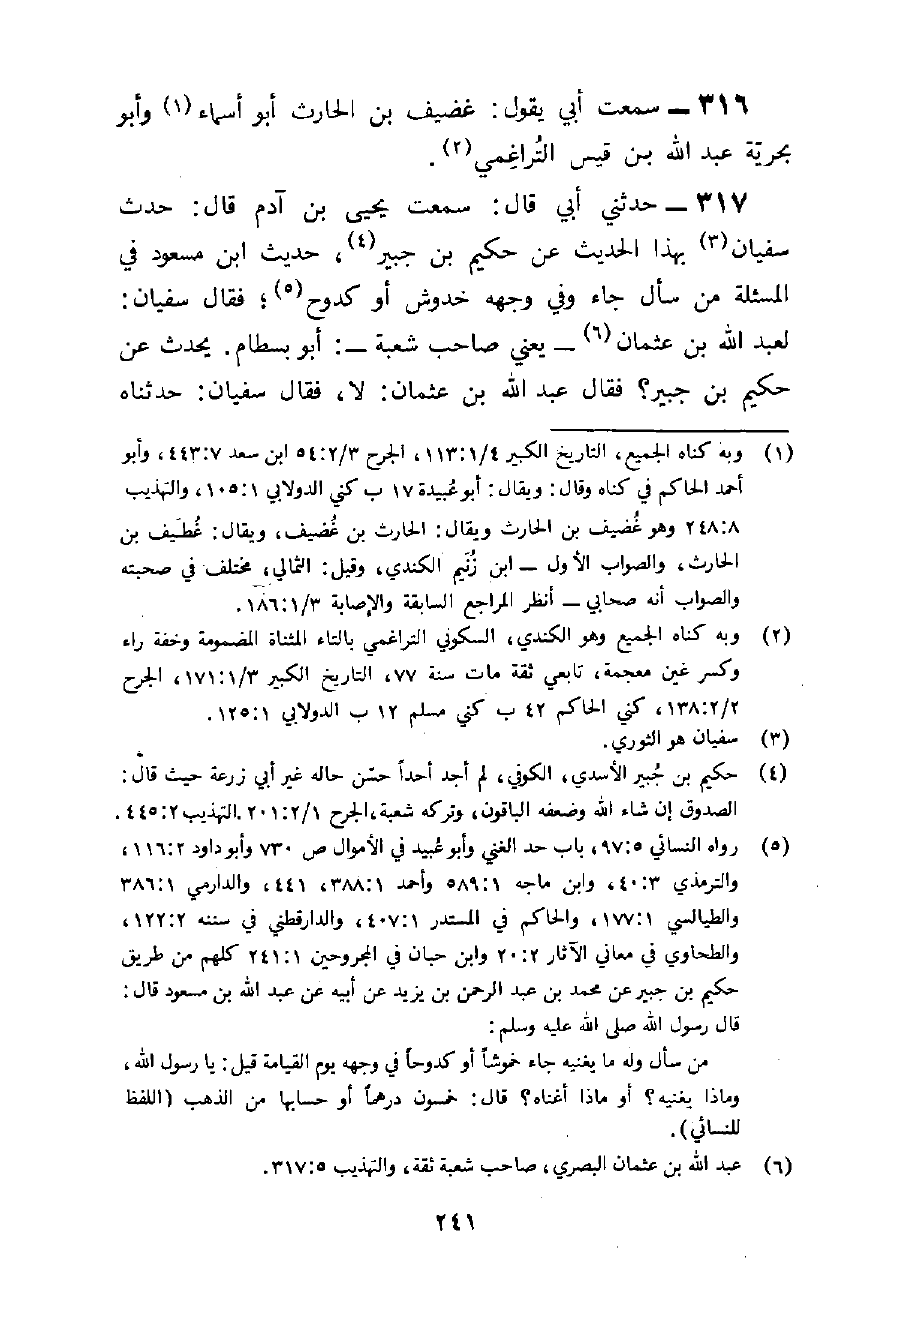 ٣١٦ ــ سمعت أبي يقول: غضيف بن الحارث أبو أسماء (١) وأبو
بحريّة عبد الله بن قيس التُراغِمي (٢).
٣١٧ ــ حدثني أبي قال: سمعت يحيى بن آدم قال: حدث
سفيان (٣) بهذا الحديث عن حكيم بن جبير (٤)، حديث ابن مسعود في
المسئلة من سأل جاء وفي وجهه خدوش أو كدوح (٥)؛ فقال سفيان:
لعبد الله بن عثمان (٦) ــ يعني صاحب شعبة ــ: أبو بسطام. يحدث عن
حكيم بن جبير؟ فقال عبد الله بن عثمان: لا، فقال سفيان: حدثناه
(١) وبه كناه الجميع، التاريخ الكبير ١١٣:١/٤، الجرح ٥٤:٢/٣ ابن سعد ٤٤٣:٧، وأبو
أحمد الحاكم في كناه وقال: ويقال: أبو عُبيدة ١٧ ب كني الدولابي ١٠٥:١، والتهذيب
٢٤٨:٨ وهو غُضيف بن الحارث ويقال: الحارث بن غُضيف، ويقال: غُطَيف بن
الحارث، والصواب الأول ــ ابن زُنَيم الكندي، وقيل: الثمالي، مختلف في صحبته
والصواب أنه صحابي ــ أنظر المراجع السابقة والإصابة ١٨٦:١/٣.
(٢) وبه كناه الجميع وهو الكندي، السكوني التراغمي بالتاء المثناة المضمومة وخفة راء
وكسر غين معجمة، تابعي ثقة مات سنة ٧٧، التاريخ الكبير ١٧١:١/٣، الجرح
١٣٨:٢/٢، كني الحاكم ٤٢ ب كني مسلم ١٢ ب الدولابي ١٢٥:١.
(٣) سفيان هو الثوري.
(٤) حكيم بن جُبير الأسدي، الكوفي، لم أجد أحداً حسّن حاله غير أبي زرعة حيث قال:
الصدوق إن شاء الله وضعفه الباقون، وتركه شعبة، الجرح ٢٠١:٢/١. التهذيب ٤٤٥:٢.
(٥) رواه النسائي ٩٧:٥، باب حد الغني وأبو عُبيد في الأموال ص ٧٣٠ وأبو داود ١١٦:٢،
والترمذي ٤٠:٣، وابن ماجه ٥٨٩:١ وأحمد ٣٨٨:١، ٤٤١، والدارمي ٣٨٦:١
والطيالسي ١٧٧:١، والحاكم في المستدر ٤٠٧:١، والدارقطني في سننه ١٢٢:٢،
والطحاوي في معاني الآثار ٢٠:٢ وابن حبان في المجروحين ٢٤١:١ كلهم من طريق
حكيم بن جبير عن محمد بن عبد الرحمن بن يزيد عن أبيه عن عبد الله بن مسعود قال:
قال رسول الله صلى الله عليه وسلم:
من سأل وله ما يغنيه جاء خموشاً أو كدوحاً في وجهه يوم القيامة قيل: يا رسول الله،
وماذا يغنيه؟ أو ماذا أغناه؟ قال: خمسون درهماً أو حسابها من الذهب (اللفظ
للنسائي).
(٦) عبد الله بن عثمان البصري، صاحب شعبة ثقة، والتهذيب ٣١٧:٥.
٢٤١